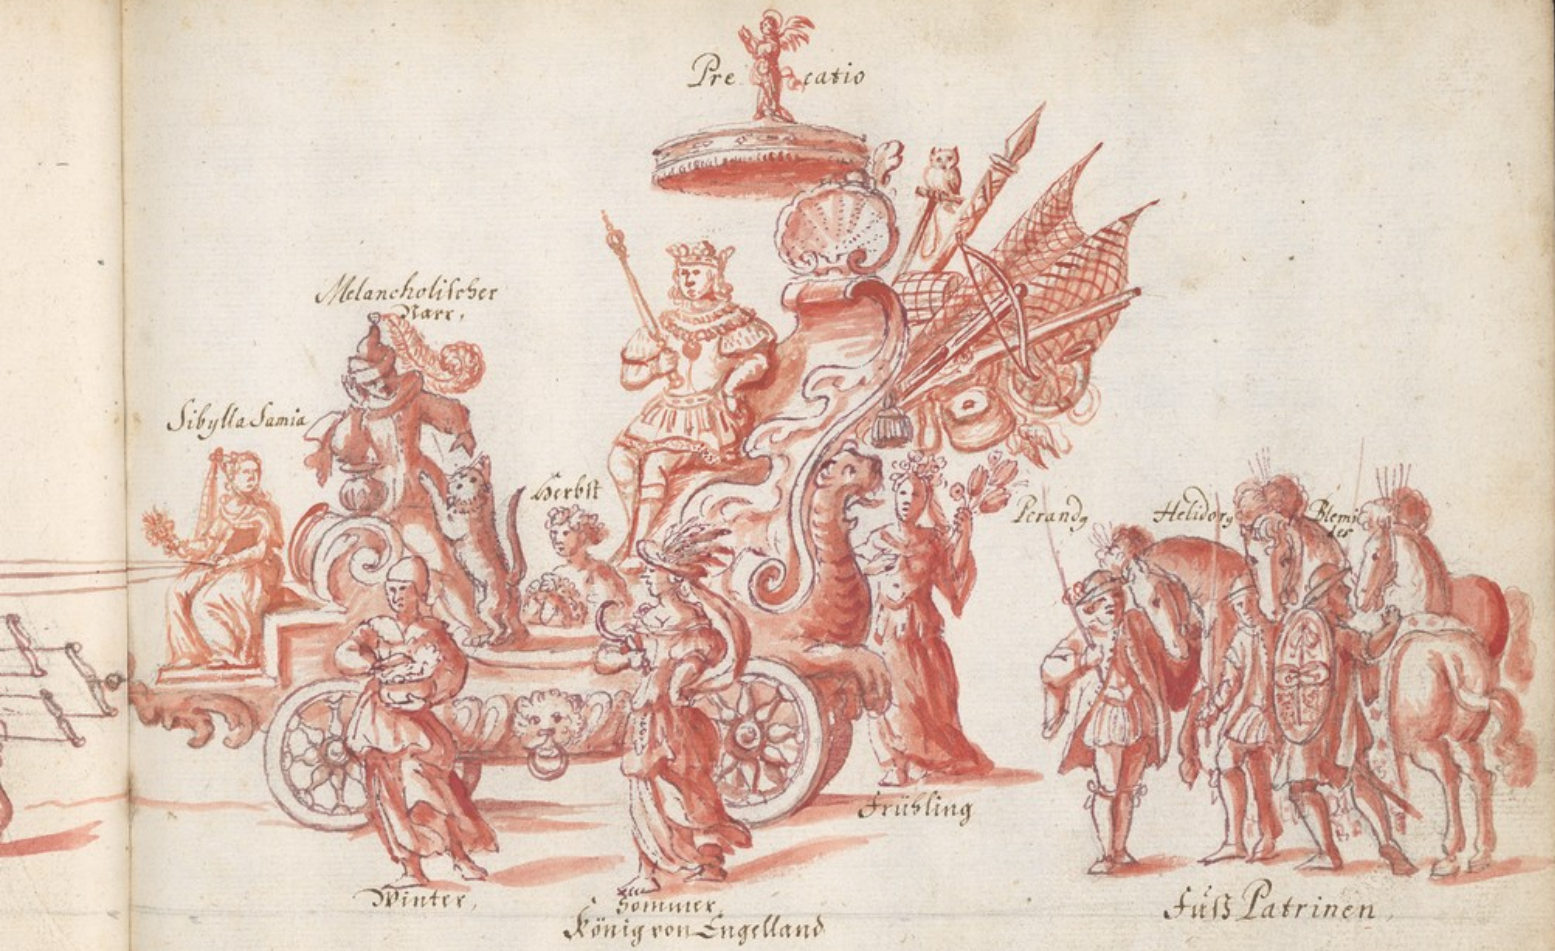 Pre catio
Melancholischer
Narr,
Sibylla Samia
Herbst
Perandg
Helidorg
Blemi
des
Frühling
Winter,
Sommer,
König von Engelland
Fúß Patrinen